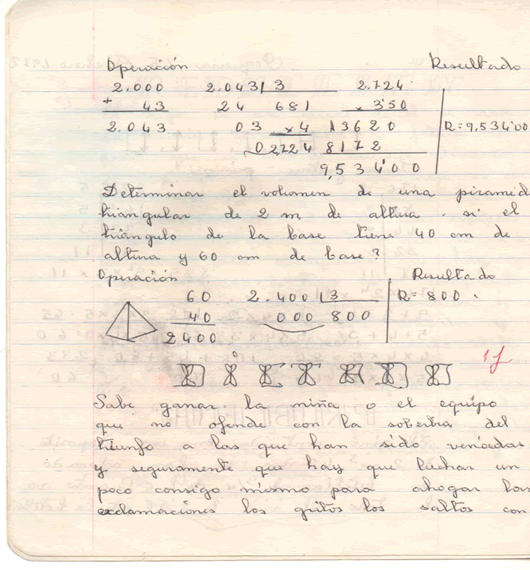 Operación Resultado
2.000 2.043 | 3 2.724
+ 43 24 681 x 3'50
2.043 03 x 4 13620 R = 9,534'00
0 2724 8172
9,534'00
Determinar el volumen de una piramide
triangular de 2 m de altura. si el
triángulo de la base tiene 40 cm de
altura y 60 cm de base?
Operación Resultado
60 2.400 | 3 R = 800.
40 000 800
2400
DICTADO
Sabe ganar la niña o el equipo
que no ofende con la soberbia del
triunfo a las que han sido vencidas
y seguramente que hay que luchar un
poco consigo mismo para ahogar las
exclamaciones los gritos los saltos con